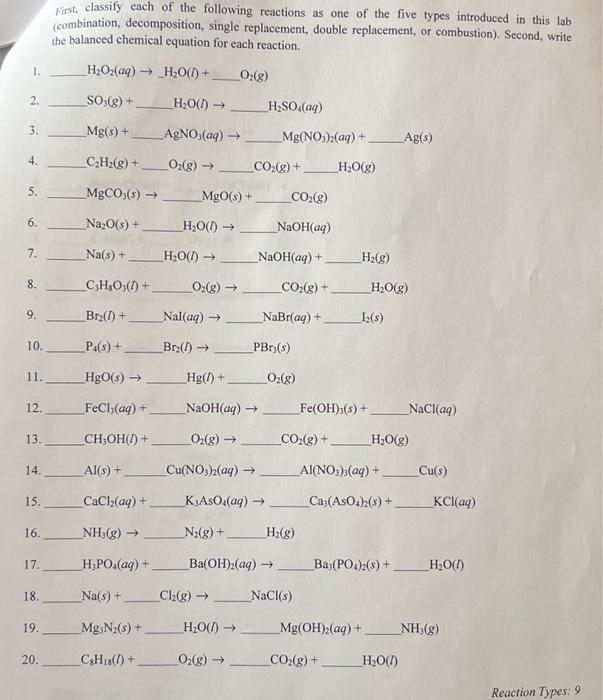 First, classify each of the following reactions as one of the five types introduced in this lab
(combination, decomposition, single replacement, double replacement, or combustion). Second, write
the balanced chemical equation for each reaction.
1. ____H₂O₂(aq) → _H₂O(l) + ____O₂(g)
2. ____SO₃(g) + ____H₂O(l) → ____H₂SO₄(aq)
3. ____Mg(s) + ____AgNO₃(aq) → ____Mg(NO₃)₂(aq) + ____Ag(s)
4. ____C₂H₂(g) + ____O₂(g) → ____CO₂(g) + ____H₂O(g)
5. ____MgCO₃(s) → ____MgO(s) + ____CO₂(g)
6. ____Na₂O(s) + ____H₂O(l) → ____NaOH(aq)
7. ____Na(s) + ____H₂O(l) → ____NaOH(aq) + ____H₂(g)
8. ____C₃H₈O₃(l) + ____O₂(g) → ____CO₂(g) + ____H₂O(g)
9. ____Br₂(l) + ____NaI(aq) → ____NaBr(aq) + ____I₂(s)
10. ____P₄(s) + ____Br₂(l) → ____PBr₃(s)
11. ____HgO(s) → ____Hg(l) + ____O₂(g)
12. ____FeCl₃(aq) + ____NaOH(aq) → ____Fe(OH)₃(s) + ____NaCl(aq)
13. ____CH₃OH(l) + ____O₂(g) → ____CO₂(g) + ____H₂O(g)
14. ____Al(s) + ____Cu(NO₃)₂(aq) → ____Al(NO₃)₃(aq) + ____Cu(s)
15. ____CaCl₂(aq) + ____K₃AsO₄(aq) → ____Ca₃(AsO₄)₂(s) + ____KCl(aq)
16. ____NH₃(g) → ____N₂(g) + ____H₂(g)
17. ____H₃PO₄(aq) + ____Ba(OH)₂(aq) → ____Ba₃(PO₄)₂(s) + ____H₂O(l)
18. ____Na(s) + ____Cl₂(g) → ____NaCl(s)
19. ____Mg₃N₂(s) + ____H₂O(l) → ____Mg(OH)₂(aq) + ____NH₃(g)
20. ____C₈H₁₈(l) + ____O₂(g) → ____CO₂(g) + ____H₂O(l)
Reaction Types: 9